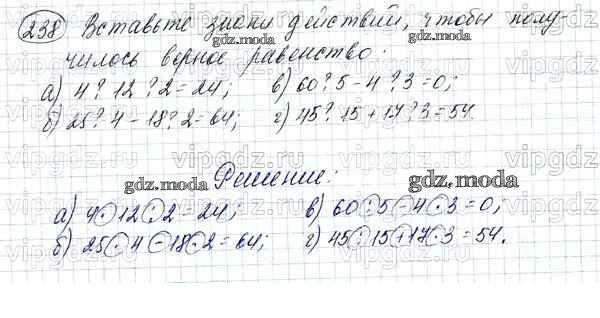 238 Вставьте знаки действий, чтобы полу-
чилось верное равенство:
а) 4 ? 12 ? 2 = 24; в) 60 ? 5 - 4 ? 3 = 0;
б) 25 ? 4 - 18 ? 2 = 64; г) 45 ? 15 + 17 ? 3 = 54.
Решение:
а) 4 · 12 : 2 = 24; в) 60 : 5 - 4 · 3 = 0;
б) 25 · 4 - 18 · 2 = 64; г) 45 : 15 + 17 · 3 = 54.
gdz.moda
gdz.moda
gdz.moda
gdz.moda
gdz.moda
gdz.moda
gdz.moda
vipgdz.ru
vipgdz.ru